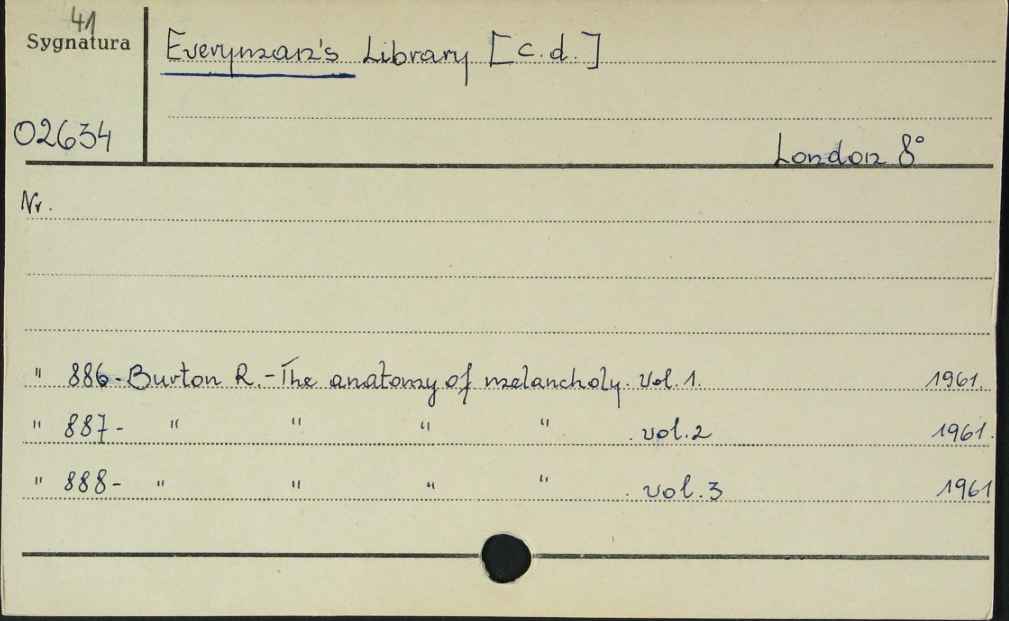 41
Sygnatura
Everyman's Library [c.d.]
02634
London 8°
Nr.
" 886-Burton R.-The anatomy of melancholy. Vol. 1. 1961.
" 887- " " " " . vol. 2 1961.
" 888- " " " " . vol. 3 1961